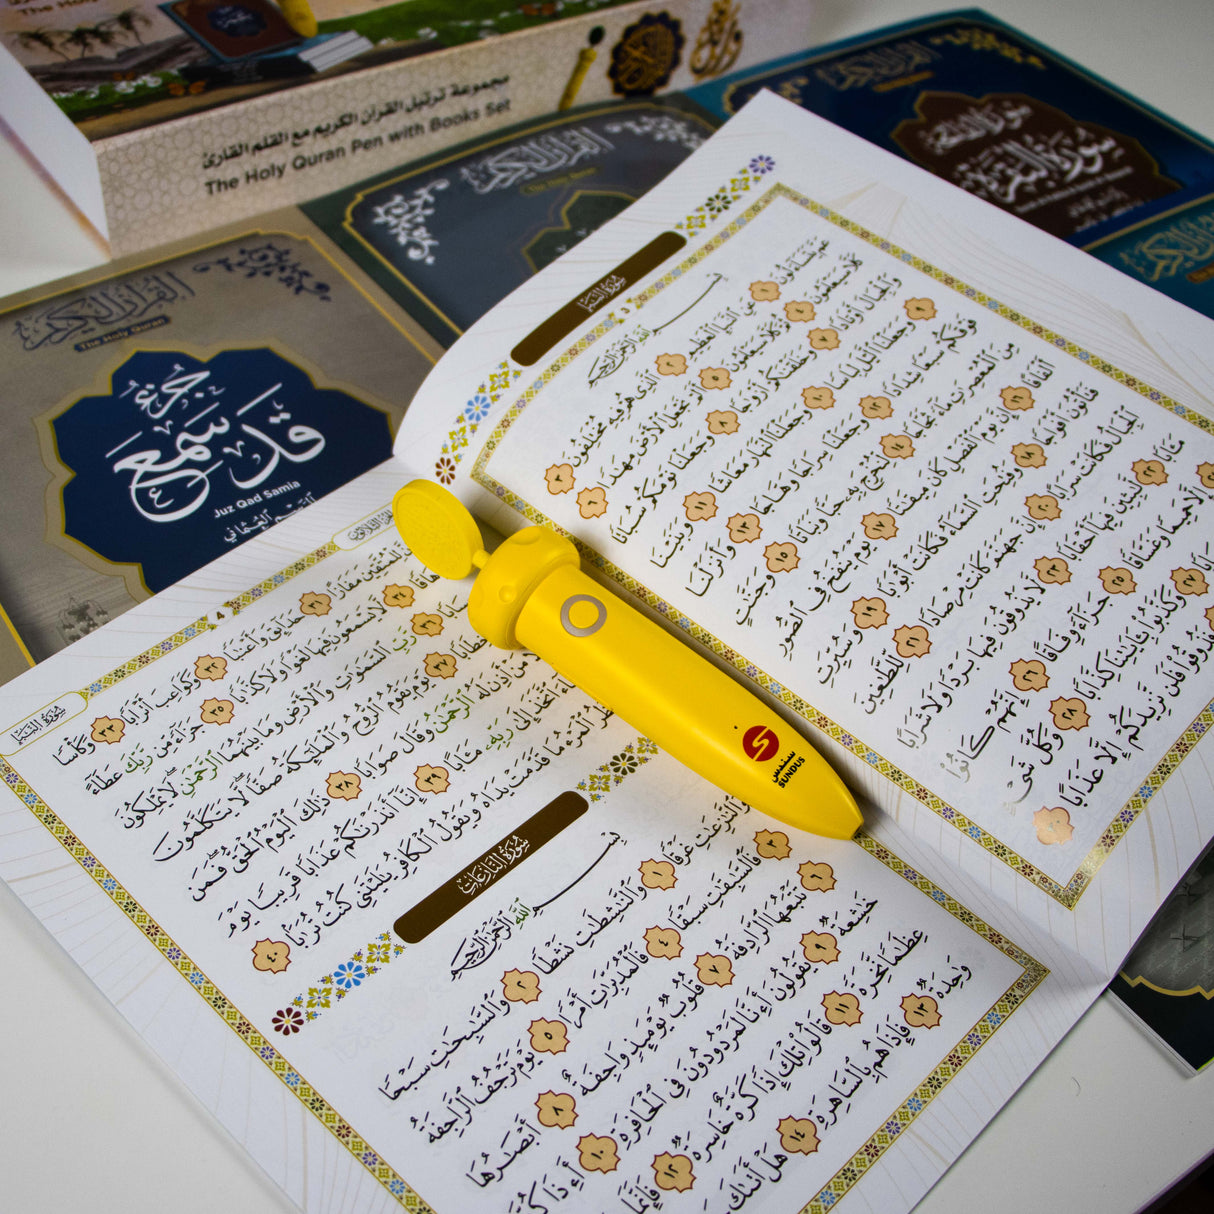 The Holy
مجموعة ترتيل القرآن الكريم مع القلم القارئ
The Holy Quran Pen with Books Set
القرآن الكريم
The Holy Quran
القرآن الكريم
The Holy Quran
جزء
قد سمع
Juz Qad Samia
بالرسم العثماني
القرآن الكريم
سورة الفاتحة
سورة البقرة
سورة النبإ
٣
بسم الله الرحمن الرحيم
عم يتساءلون ١ عن النبإ العظيم ٢ الذي هم فيه مختلفون ٣
كلا سيعلمون ٤ ثم كلا سيعلمون ٥ ألم نجعل الأرض مهدا ٦
والجبال أوتادا ٧ وخلقنكم أزوجا ٨ وجعلنا نومكم سباتا
٩ وجعلنا اليل لباسا ١٠ وجعلنا النهار معاشا ١١ وبنينا
فوقكم سبعا شدادا ١٢ وجعلنا سراجا وهاجا ١٣ وأنزلنا
من المعصرت ماء ثجاجا ١٤ لنخرج به حبا ونباتا ١٥ وجنت
ألفافا ١٦ إن يوم الفصل كان ميقتا ١٧ يوم ينفخ في الصور
فتأتون أفواجا ١٨ وفتحت السماء فكانت أبوبا ١٩ وسيرت
الجبال فكانت سرابا ٢٠ إن جهنم كانت مرصادا ٢١ للطغين
مئابا ٢٢ لبثين فيها أحقابا ٢٣ لا يذوقون فيها بردا ولا شرابا
إلا حميما وغساقا ٢٥ جزاء وفاقا ٢٦ إنهم كانوا
٢٧ وكذبوا بئايتنا كذابا ٢٨ وكل شيء
فذوقوا فلن نزيدكم إلا عذابا ٣٠
سورة النبإ
٤
الجزء الثلاثون
للمتقين مفازا ٣١ حدائق وأعنبا ٣٢ وكواعب أترابا ٣٣ وكأسا
دهاقا ٣٤ لا يسمعون فيها لغوا ولا كذبا ٣٥ جزاء من ربك عطاء
حسابا ٣٦ رب السموت والأرض وما بينهما الرحمن لا يملكون
خطابا ٣٧ يوم يقوم الروح والملئكة صفا لا يتكلمون
من أذن له الرحمن وقال صوابا ٣٨ ذلك اليوم الحق فمن
اتخذ إلى ربه مئابا ٣٩ إنا أنذرنكم عذابا قريبا يوم
المرء ما قدمت يداه ويقول الكافر يليتني كنت تربا ٤٠
سورة النازعات
بسم الله الرحمن الرحيم
والنزعت غرقا ١ والنشطت نشطا ٢ والسبحت سبحا
٣ فالسبقت سبقا ٤ فالمدبرت أمرا ٥ يوم ترجف الراجفة
٦ تتبعها الرادفة ٧ قلوب يومئذ واجفة ٨ أبصرها
خشعة ٩ يقولون أءنا لمردودون في الحافرة ١٠ أءذا كنا
عظما نخرة ١١ قالوا تلك إذا كرة خاسرة ١٢ فإنما
وحدة ١٣ فإذا هم بالساهرة ١٤ هل أتىك
سندس
SUNDUS